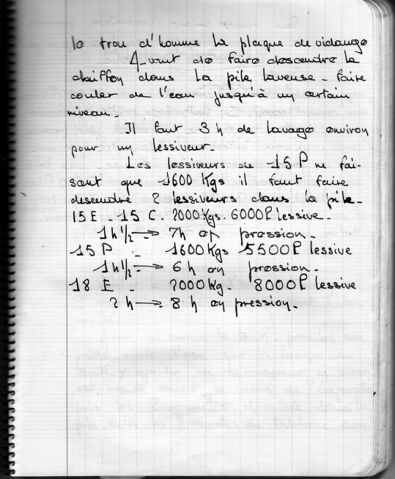 le trou d'homme la plaque de vidange
Avant de faire descendre le
chiffon dans la pile laveuse - faire
couler de l'eau jusqu'à un certain
niveau -
Il faut 3 h de lavage environ
pour un lessiveur.
Les lessiveurs de 15 P ne fai-
sant que 1600 Kgs il faut faire
descendre 2 lessiveurs dans la pile -
15 E - 15 C. 2000 Kgs. 6000 P lessive -
1h½ → 7h en pression -
15 P - 1600 Kgs 5500 P lessive
1h½ → 6 h en pression -
18 E - 2000 Kg - 8000 P lessive
2 h → 8 h en pression -